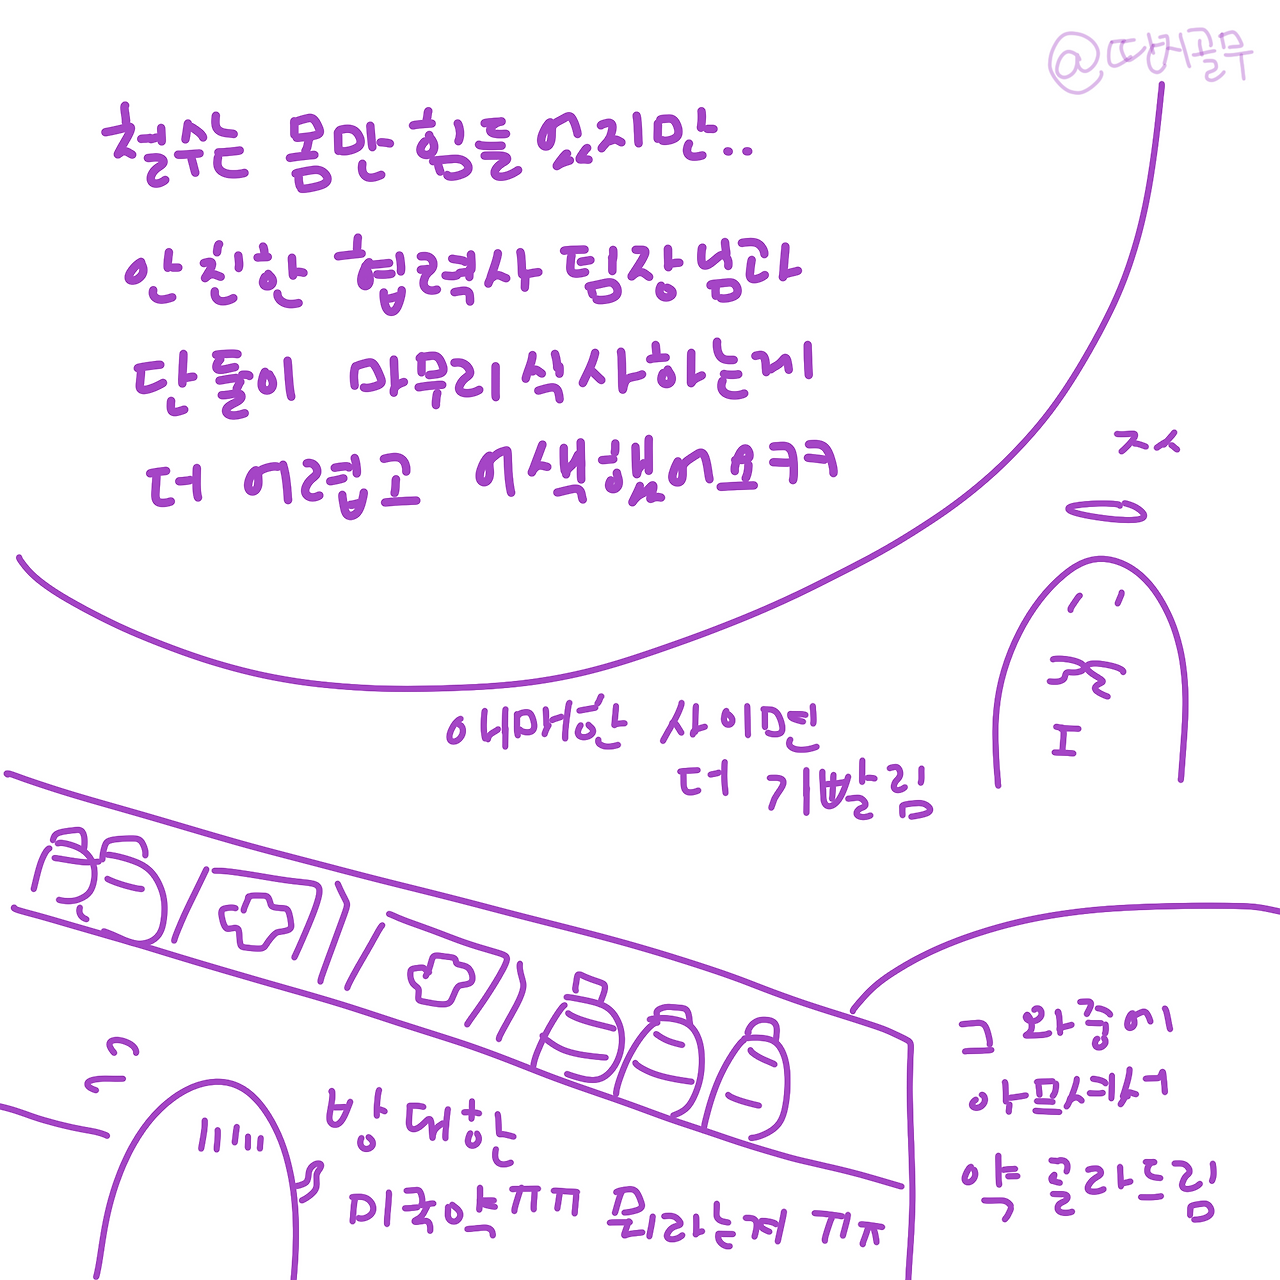 @땅거골무
철수는 몸만 힘들었지만..
안친한 협력사 팀장님과
단둘이 마무리식사하는게
더 어렵고 어색했어요ㅋㅋ
ㅈㅅ
애매한 사이면
더 기빨림
그 와중에
아프셔서
약 골라드림
방대한
미국약ㅠㅠ 뭐라는겨 ㅠㅠ